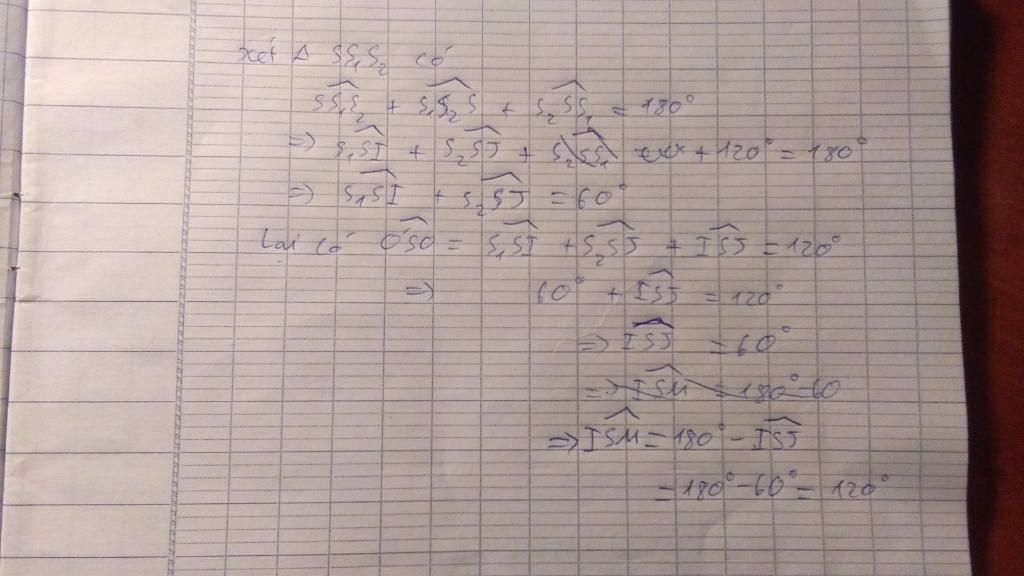 Xét Δ SS₁S₂ có
SS₁S₂ + S₁S₂S + S₂SS₁ = 180°
=> S₁SI + S₂SJ + S₂SS₁ + 120° = 180°
=> S₁SI + S₂SJ = 60°
Lại có O'SO = S₁SI + S₂SJ + ISJ = 120°
=> 60° + ISJ = 120°
=> ISJ = 60°
=> ISM = 180° - 60
=> ISM = 180° - ISJ
= 180° - 60° = 120°